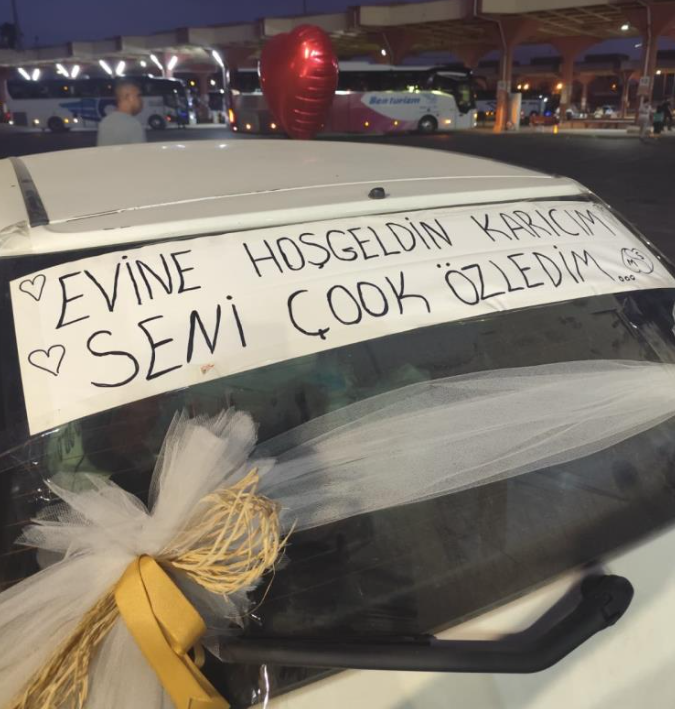 EVİNE HOŞGELDİN KARICIM
SENİ ÇOOK ÖZLEDİM...
Ben turizm